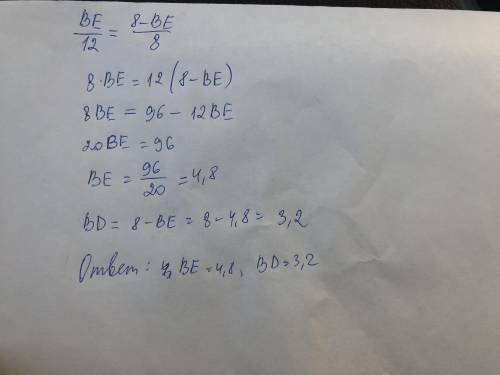 BE/12 = 8-BE/8
8·BE = 12(8-BE)
8BE = 96 - 12BE
20BE = 96
BE = 96/20 = 4,8
BD = 8-BE = 8-4,8 = 3,2
Ответ: BE = 4,8, BD = 3,2